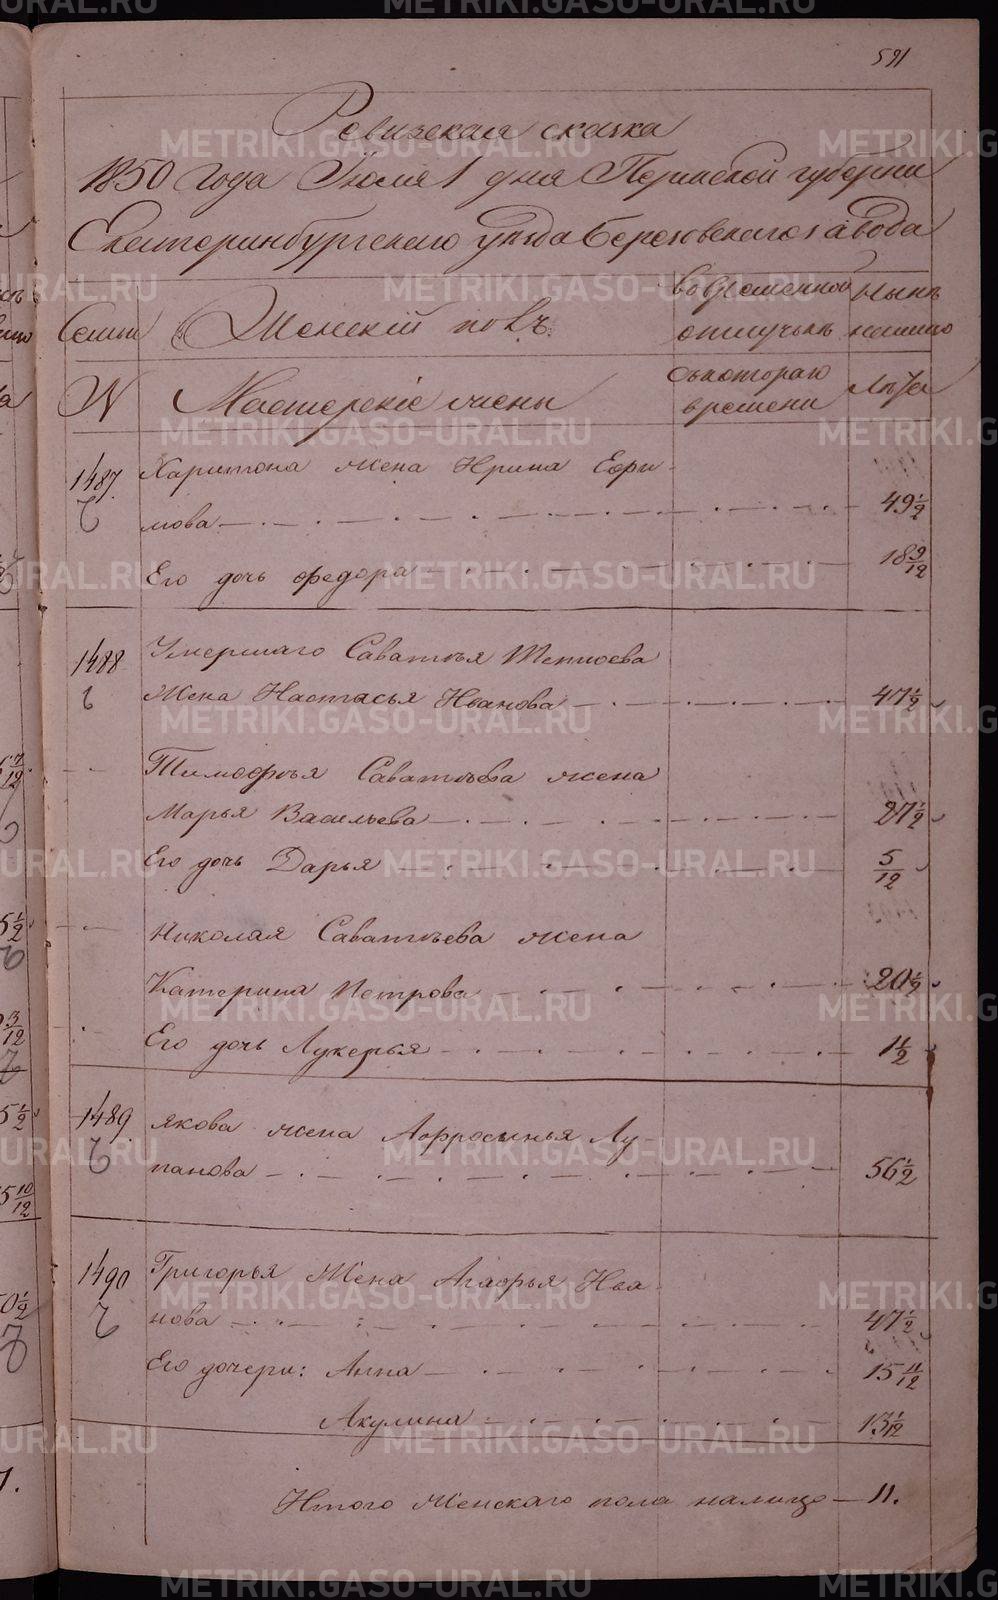 591
Ревизская сказка
1850 года Июля 1 дня Пермской губернии
Екатеринбургского уезда Березовского завода
Семьи
Женский полъ
во временной отлучькѣ
нынѣ на лицо
N
Мастерскіе жены
съкотораго времени
Лѣта
1487 Харитона жена Ирина Ефи-
мова 49 1/2
Его дочь Федора 18 9/12
1488 Умершаго Саватѣя
Жена Настасья Иванова 47 1/2
Тимофѣя Саватѣева жена
Марья Васильева 27 1/2
Его дочь Дарья 5/12
Николая Саватѣева жена
Катерина Петрова 20 1/2
Его дочь Лукерья 1 1/2
1489 Якова жена Аффросинья Лу-
панова 56 1/2
1490 Григорья Жена Агафья Ива-
нова 47 1/2
Его дочери: Анна 15 11/12
Акулина 13 1/12
Итого Женскаго пола налицо 11.
METRIKI.GASO-URAL.RU